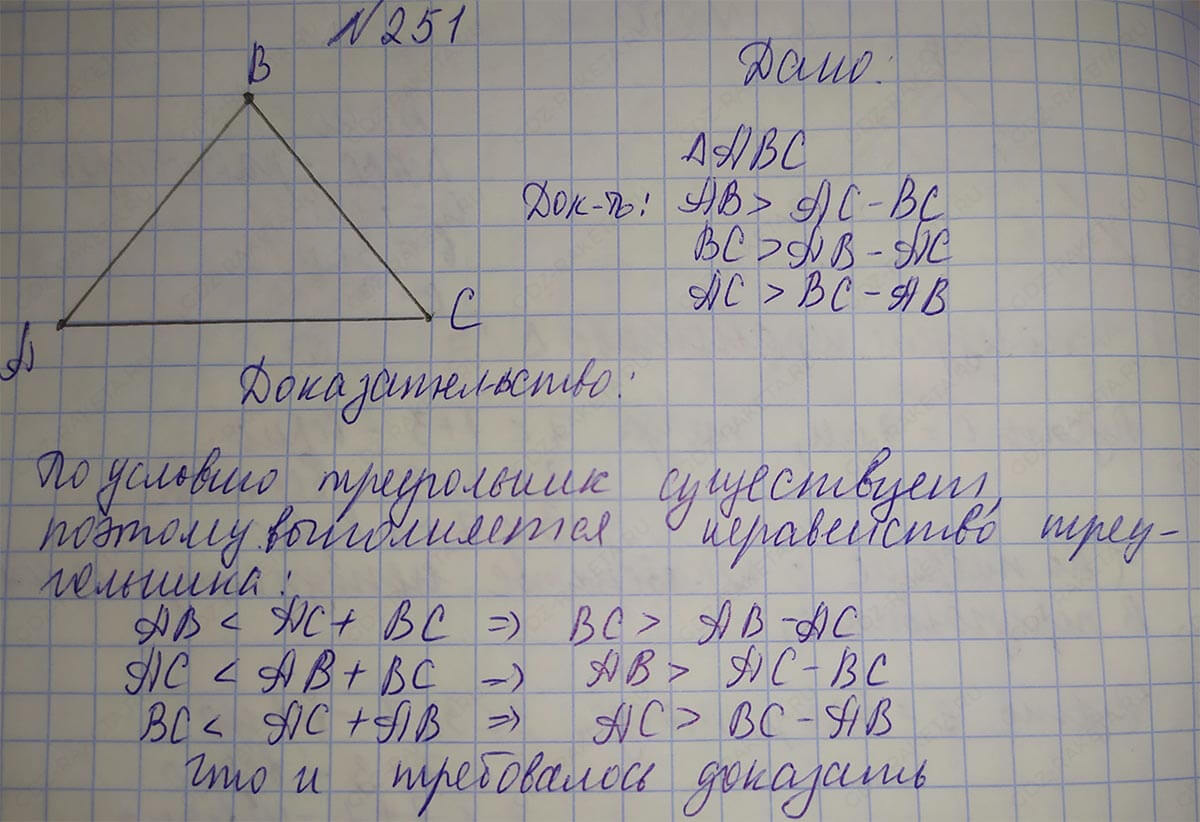 №251
B
A
C
Дано:
ΔABC
Док-ть: AB > AC - BC
BC > AB - AC
AC > BC - AB
Доказательство:
По условию треугольник существует,
поэтому выполняется неравенство треу-
гольника:
AB < AC + BC => BC > AB - AC
AC < AB + BC => AB > AC - BC
BC < AC + AB => AC > BC - AB
Что и требовалось доказать